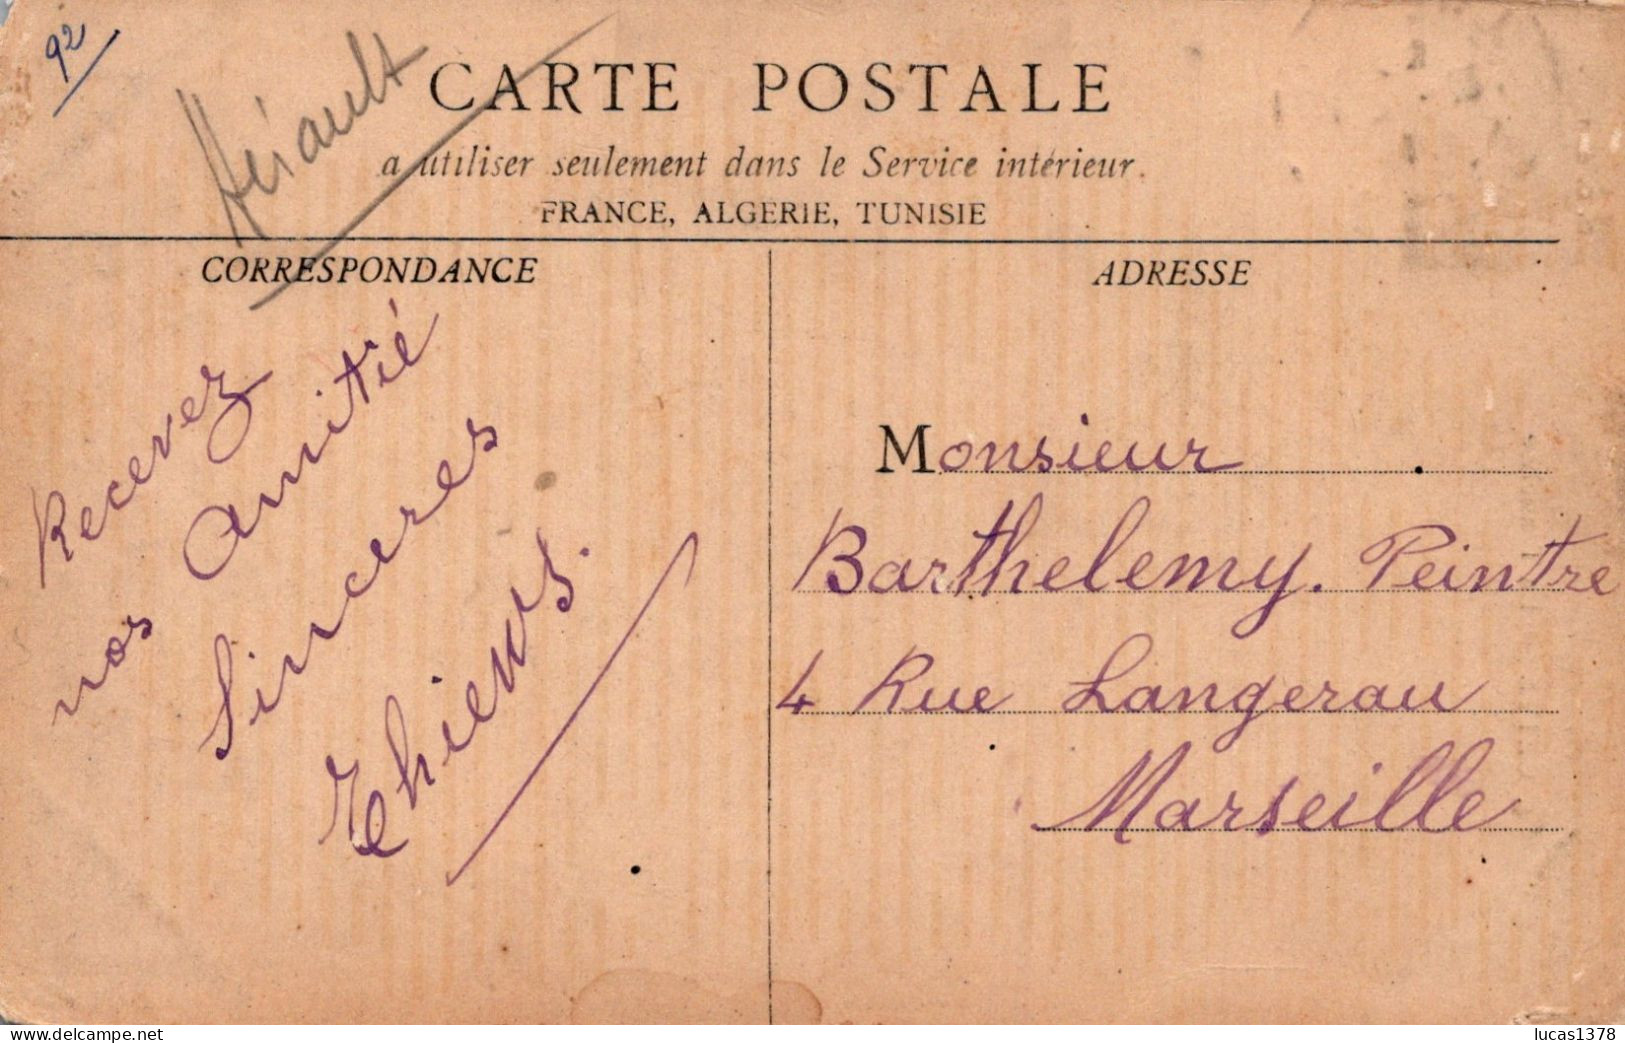 92
Hérault
CARTE POSTALE
a utiliser seulement dans le Service intérieur.
FRANCE, ALGERIE, TUNISIE
CORRESPONDANCE
Recevez
nos Amitié
Sinceres
ADRESSE
Monsieur
Barthelemy. Peintre
4 Rue Langerau
Marseille
delcampe.net
lucas1378